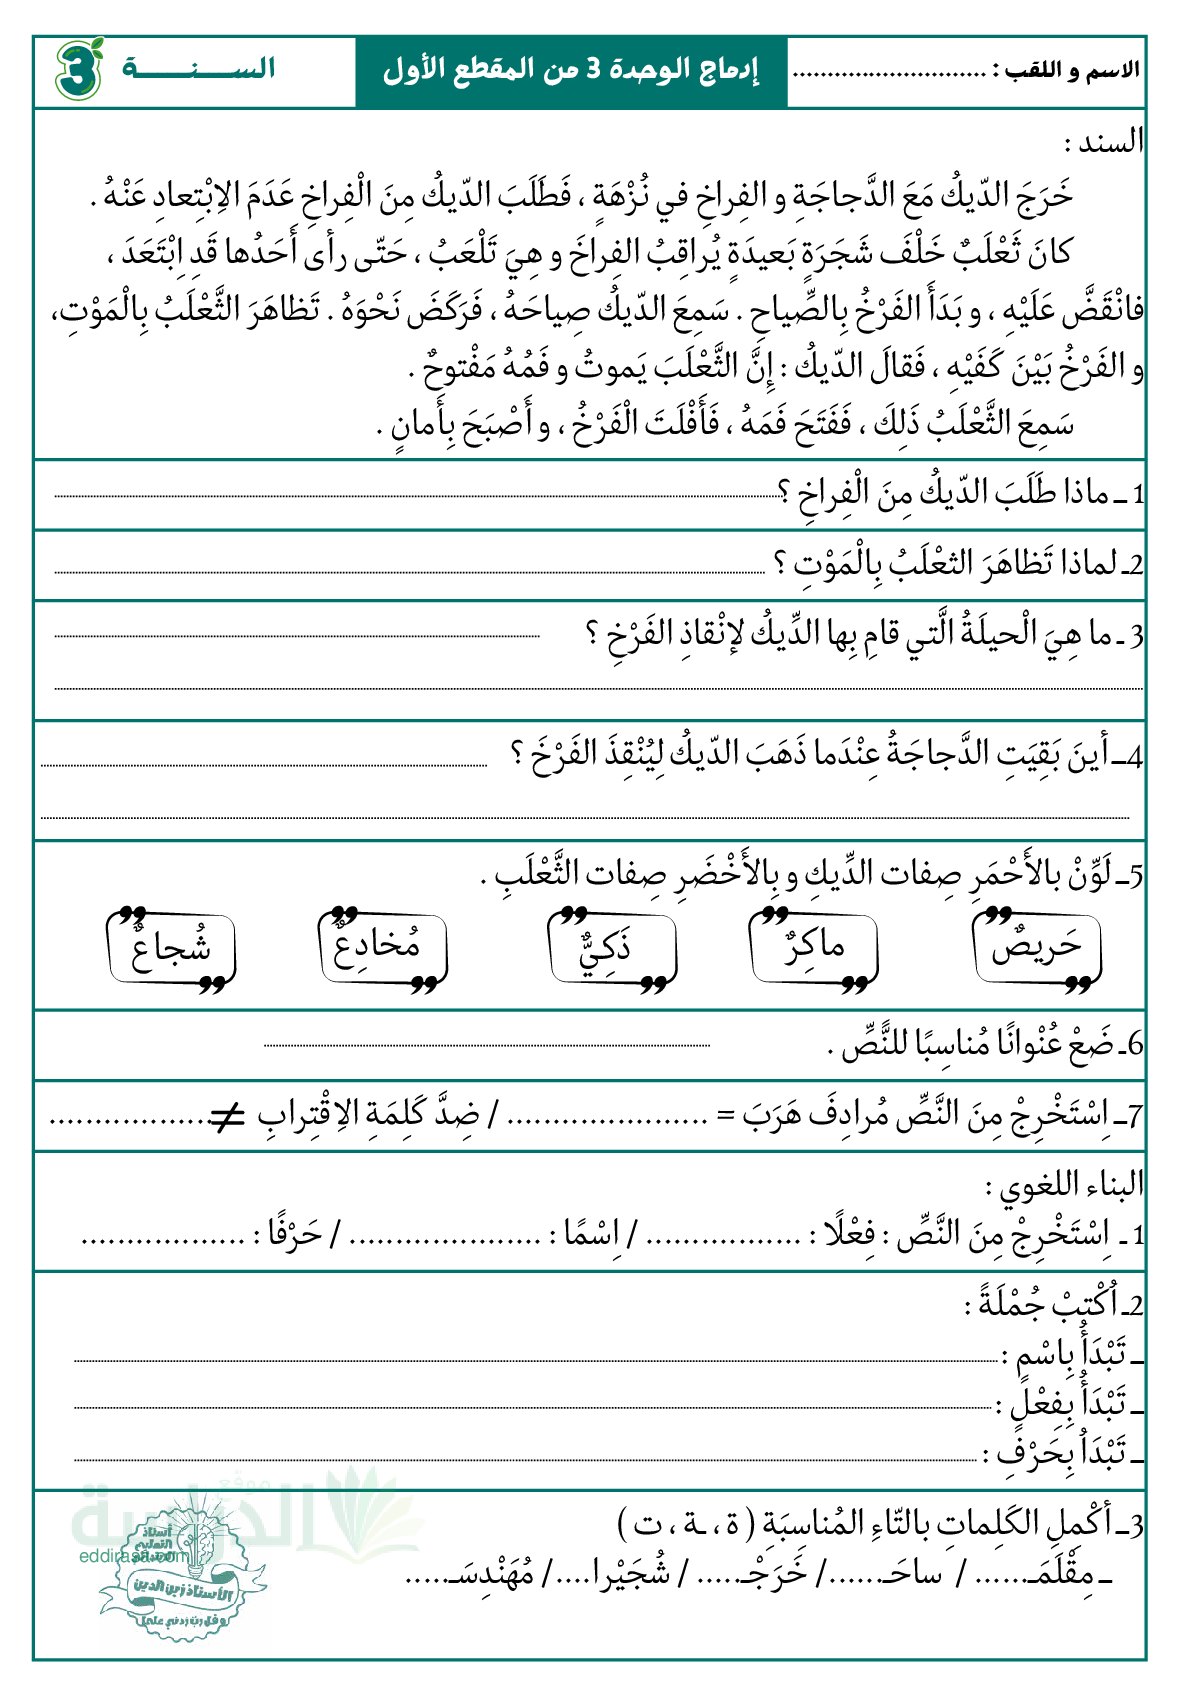 الاسم و اللقب : ............................
إدماج الوحدة 3 من المقطع الأول
الســـنـــــــة 3
السند :
خَرَجَ الدّيكُ مَعَ الدَّجاجَةِ و الفِراخِ في نُزْهَةٍ ، فَطَلَبَ الدّيكُ مِنَ الْفِراخِ عَدَمَ الاِبْتِعادِ عَنْهُ .
كانَ ثَعْلَبٌ خَلْفَ شَجَرَةٍ بَعيدَةٍ يُراقِبُ الفِراخَ و هِيَ تَلْعَبُ ، حَتّى رأى أَحَدُها قَدِ اِبْتَعَدَ ،
فانْقَضَّ عَلَيْهِ ، و بَدَأَ الفَرْخُ بِالصِّياحِ . سَمِعَ الدّيكُ صِياحَهُ ، فَرَكَضَ نَحْوَهُ . تَظاهَرَ الثَّعْلَبُ بِالْمَوْتِ،
و الفَرْخُ بَيْنَ كَفَيْهِ ، فَقالَ الدّيكُ : إِنَّ الثَّعْلَبَ يَموتُ و فَمُهُ مَفْتوحٌ .
سَمِعَ الثَّعْلَبُ ذَلِكَ ، فَفَتَحَ فَمَهُ ، فَأَفْلَتَ الْفَرْخُ ، و أَصْبَحَ بِأَمانٍ .
1 ـ ماذا طَلَبَ الدّيكُ مِنَ الْفِراخِ ؟
2ـ لماذا تَظاهَرَ الثعْلَبُ بِالْمَوْتِ ؟
3 ـ ما هِيَ الْحيلَةُ الَّتي قامِ بِها الدِّيكُ لإنْقاذِ الفَرْخِ ؟
4ـ أينَ بَقِيَتِ الدَّجاجَةُ عِنْدَما ذَهَبَ الدّيكُ لِيُنْقِذَ الفَرْخَ ؟
5ـ لَوِّنْ بالأَحْمَرِ صِفات الدِّيكِ و بِالأَخْضَرِ صِفات الثَّعْلَبِ .
حَريصٌ ماكِرٌ ذَكِيٌّ مُخادِعٌ شُجاعٌ
6ـ ضَعْ عُنْوانًا مُناسِبًا للنَّصِّ .
7ـ اِسْتَخْرِجْ مِنَ النَّصِّ مُرادِفَ هَرَبَ = ...................... / ضِدَّ كَلِمَةِ الاِقْتِرابِ ≠..................
البناء اللغوي :
1 ـ اِسْتَخْرِجْ مِنَ النَّصِّ : فِعْلًا : ................. / اِسْمًا : ..................... / حَرْفًا : ..................
2ـ اُكْتِبْ جُمْلَةً :
ـ تَبْدَأُ بِاسْمٍ :
ـ تَبْدَأُ بِفِعْلٍ :
ـ تَبْدَأُ بِحَرْفٍ :
3ـ أكْمِلِ الكَلِماتِ بالتّاءِ المُناسِبَةِ ( ة ، ـة ، ت )
ـ مِقْلَمَـ...... / ساحَـ....../ خَرَجْـ..... / شُجَيْرا..../ مُهَنْدِسَـ.....
موقع
الدراسة
eddirasa.com
أستاذ
التعليم
الابتدائي
الأستاذ زين الدين
وقل رب زدني علما